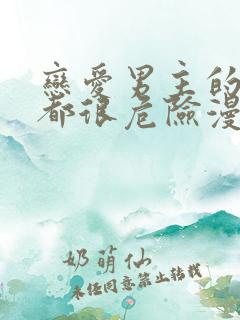 戀愛男主的
都很危險漫
奶萌仙
未经同意禁止转载